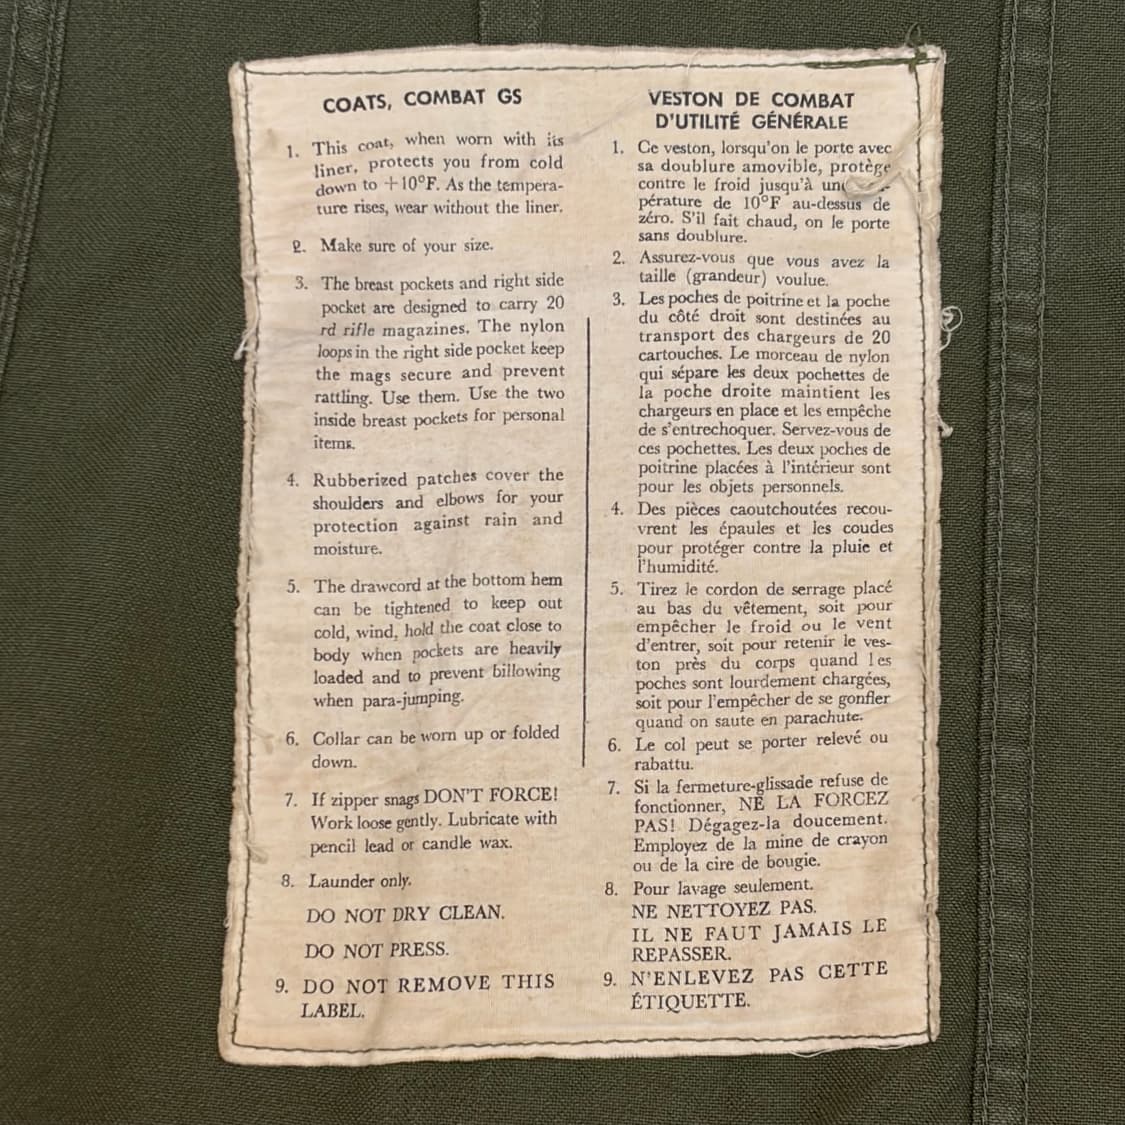 COATS, COMBAT GS
1. This coat, when worn with its
liner, protects you from cold
down to +10°F. As the tempera-
ture rises, wear without the liner.
2. Make sure of your size.
3. The breast pockets and right side
pocket are designed to carry 20
rd rifle magazines. The nylon
loops in the right side pocket keep
the mags secure and prevent
rattling. Use them. Use the two
inside breast pockets for personal
items.
4. Rubberized patches cover the
shoulders and elbows for your
protection against rain and
moisture.
5. The drawcord at the bottom hem
can be tightened to keep out
cold, wind, hold the coat close to
body when pockets are heavily
loaded and to prevent billowing
when para-jumping.
6. Collar can be worn up or folded
down.
7. If zipper snags DON'T FORCE!
Work loose gently. Lubricate with
pencil lead or candle wax.
8. Launder only.
DO NOT DRY CLEAN.
DO NOT PRESS.
9. DO NOT REMOVE THIS
LABEL.
VESTON DE COMBAT
D'UTILITÉ GÉNÉRALE
1. Ce veston, lorsqu'on le porte avec
sa doublure amovible, protège
contre le froid jusqu'à
pérature de 10°F au-dessus de
zéro. S'il fait chaud, on le porte
sans doublure.
2. Assurez-vous que vous avez la
taille (grandeur) voulue.
3. Les poches de poitrine et la poche
du côté droit sont destinées au
transport des chargeurs de 20
cartouches. Le morceau de nylon
qui sépare les deux pochettes de
la poche droite maintient les
chargeurs en place et les empêche
de s'entrechoquer. Servez-vous de
ces pochettes. Les deux poches de
poitrine placées à l'intérieur sont
pour les objets personnels.
4. Des pièces caoutchoutées recou-
vrent les épaules et les coudes
pour protéger contre la pluie et
l'humidité.
5. Tirez le cordon de serrage placé
au bas du vêtement, soit pour
empêcher le froid ou le vent
d'entrer, soit pour retenir le ves-
ton près du corps quand les
poches sont lourdement chargées,
soit pour l'empêcher de se gonfler
quand on saute en parachute.
6. Le col peut se porter relevé ou
rabattu.
7. Si la fermeture-glissade refuse de
fonctionner, NE LA FORCEZ
PAS! Dégagez-la doucement.
Employez de la mine de crayon
ou de la cire de bougie.
8. Pour lavage seulement.
NE NETTOYEZ PAS.
IL NE FAUT JAMAIS LE
REPASSER.
9. N'ENLEVEZ PAS CETTE
ÉTIQUETTE.